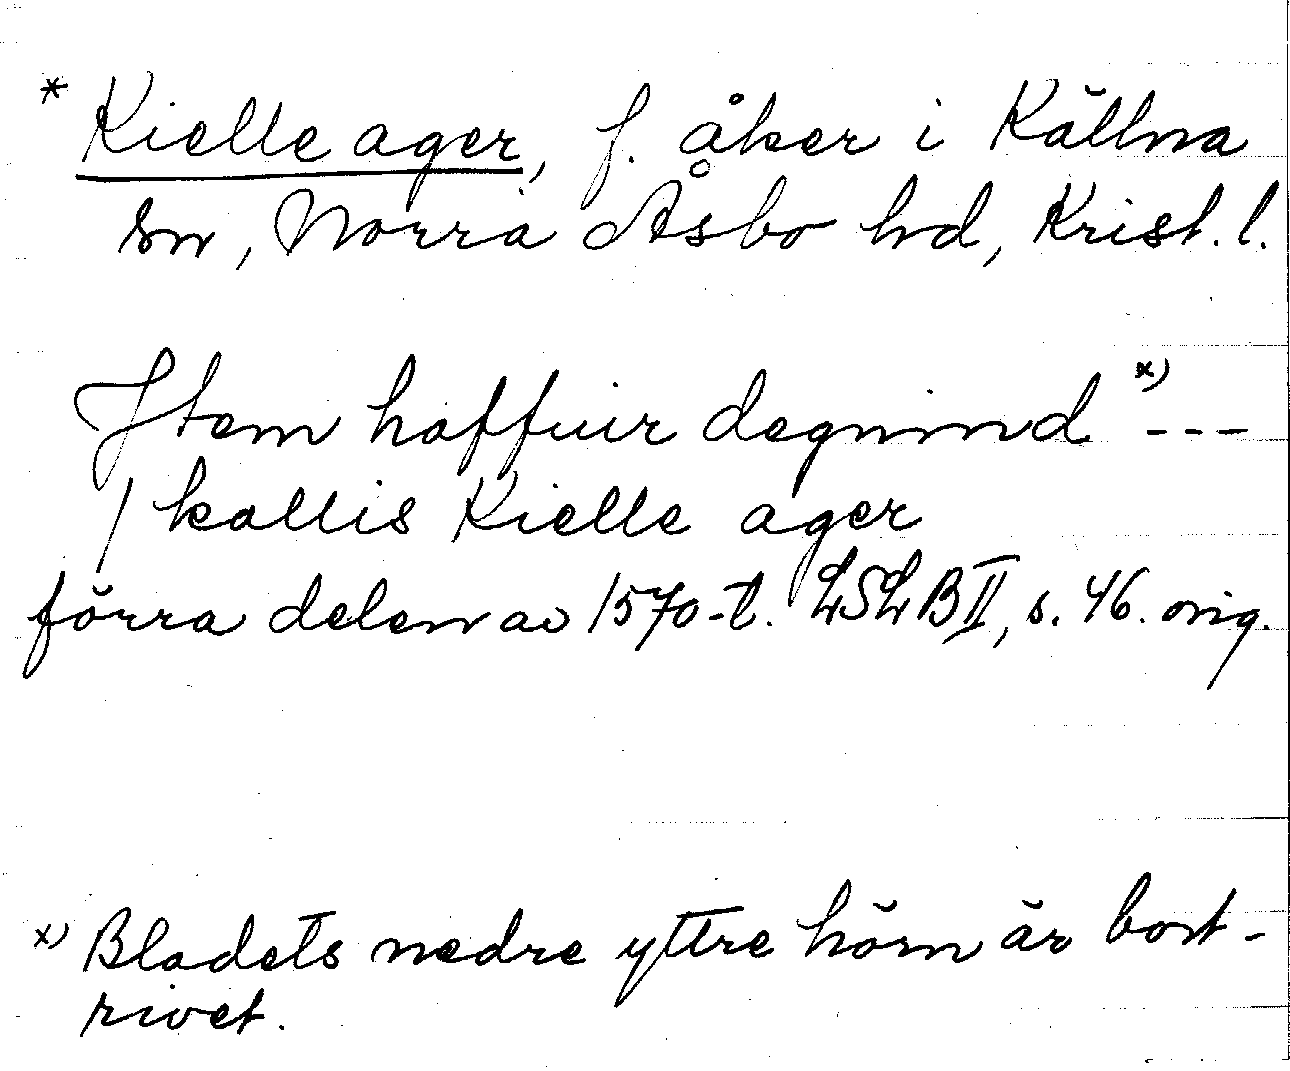 * Kielle ager, f. åker i Källna
sn, Norra Åsbo hd, Krist. l.
Item haffuir degnind x) ---
/ kallis Kielle ager
förra delen av 1570-t. LSLB II, s. 46. orig.
x) Bladets nedre yttre hörn är bort-
rivet.